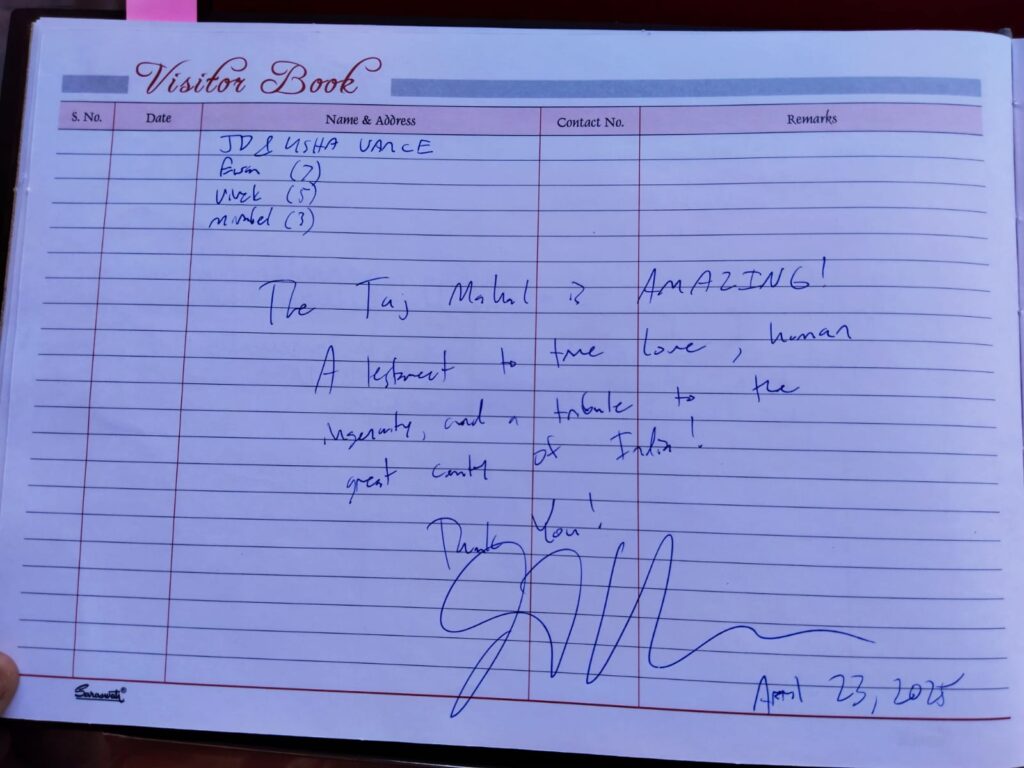 Visitor Book
S. No. Date Name & Address Contact No. Remarks
JD & USHA VANCE
Ewan (7)
Vivek (5)
Mirabel (3)
The Taj Mahal is AMAZING!
A testament to true love, human
ingenuity, and a tribute to the
great country of India!
Thank You!
April 23, 2025
Saraswati